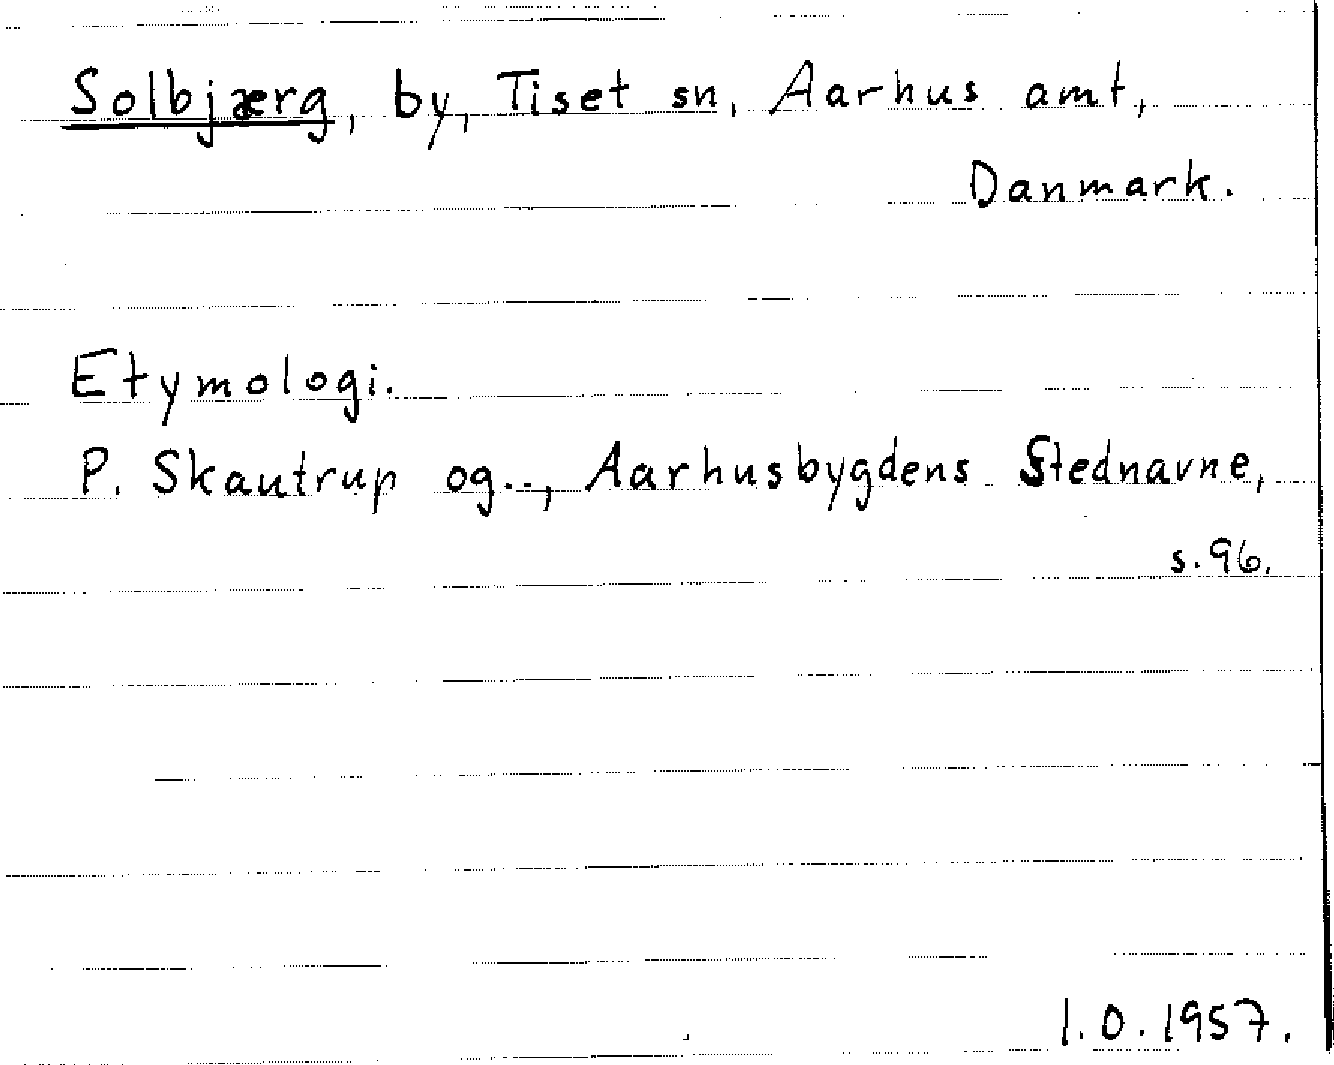 Solbjærg, by, Tiset sn, Aarhus amt,
Danmark.
Etymologi.
P. Skautrup og.., Aarhusbygdens Stednavne,
s. 96.
I. O. 1957.